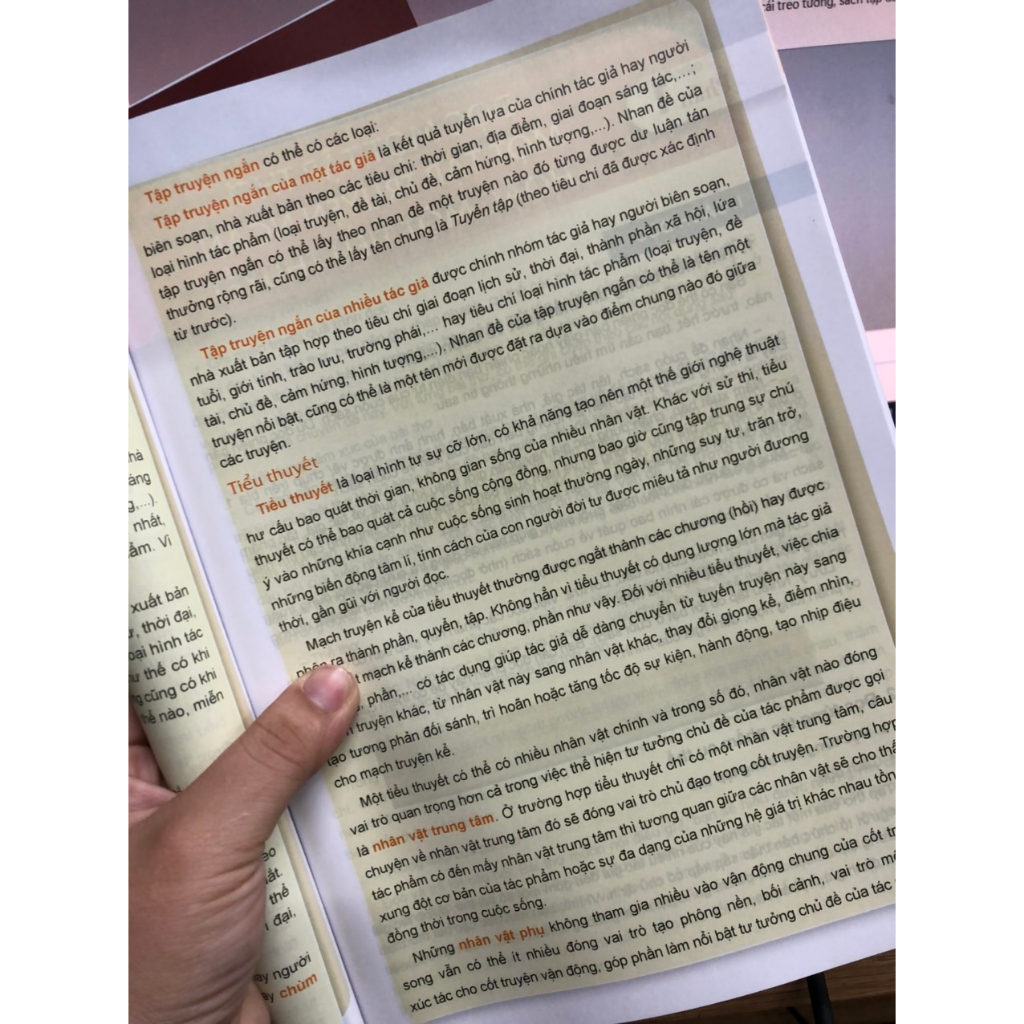 cái treo tường, sách tập
Tập truyện ngắn có thể có các loại:
Tập truyện ngắn của một tác giả là kết quả tuyển lựa của chính tác giả hay người
biên soạn, nhà xuất bản theo các tiêu chí: thời gian, địa điểm, giai đoạn sáng tác,...;
loại hình tác phẩm (loại truyện, đề tài, chủ đề, cảm hứng, hình tượng,...). Nhan đề của
tập truyện ngắn có thể lấy theo nhan đề một truyện nào đó từng được dư luận tán
thưởng rộng rãi, cũng có thể lấy tên chung là Tuyển tập (theo tiêu chí đã được xác định
từ trước).
Tập truyện ngắn của nhiều tác giả được chính nhóm tác giả hay người biên soạn,
nhà xuất bản tập hợp theo tiêu chí giai đoạn lịch sử, thời đại, thành phần xã hội, lứa
tuổi, giới tính, trào lưu, trường phái,... hay tiêu chí loại hình tác phẩm (loại truyện, đề
tài, chủ đề, cảm hứng, hình tượng,...). Nhan đề của tập truyện ngắn có thể là tên một
truyện nổi bật, cũng có thể là một tên mới được đặt ra dựa vào điểm chung nào đó giữa
các truyện.
Tiểu thuyết
Tiểu thuyết là loại hình tự sự cỡ lớn, có khả năng tạo nên một thế giới nghệ thuật
hư cấu bao quát thời gian, không gian sống của nhiều nhân vật. Khác với sử thi, tiểu
thuyết có thể bao quát cả cuộc sống cộng đồng, nhưng bao giờ cũng tập trung sự chú
ý vào những khía cạnh như cuộc sống sinh hoạt thường ngày, những suy tư, trăn trở,
những biến động tâm lí, tính cách của con người đời tư được miêu tả như người đương
thời, gần gũi với người đọc.
Mạch truyện kể của tiểu thuyết thường được ngắt thành các chương (hồi) hay được
phân ra thành phần, quyển, tập. Không hẳn vì tiểu thuyết có dung lượng lớn mà tác giả
mạch kể thành các chương, phần như vậy. Đối với nhiều tiểu thuyết, việc chia
phần,... có tác dụng giúp tác giả dễ dàng chuyển từ tuyến truyện này sang
truyện khác, từ nhân vật này sang nhân vật khác, thay đổi giọng kể, điểm nhìn,
tạo tương phản đối sánh, trì hoãn hoặc tăng tốc độ sự kiện, hành động, tạo nhịp điệu
cho mạch truyện kể.
Một tiểu thuyết có thể có nhiều nhân vật chính và trong số đó, nhân vật nào đóng
vai trò quan trọng hơn cả trong việc thể hiện tư tưởng chủ đề của tác phẩm được gọi
là nhân vật trung tâm. Ở trường hợp tiểu thuyết chỉ có một nhân vật trung tâm, câu
chuyện về nhân vật trung tâm đó sẽ đóng vai trò chủ đạo trong cốt truyện. Trường hợp
tác phẩm có đến mấy nhân vật trung tâm thì tương quan giữa các nhân vật sẽ cho
xung đột cơ bản của tác phẩm hoặc sự đa dạng của những hệ giá trị khác nhau tồn
đồng thời trong cuộc sống.
Những nhân vật phụ không tham gia nhiều vào vận động chung của cốt
song vẫn có thể ít nhiều đóng vai trò tạo phông nền, bối cảnh, vai trò
xúc tác cho cốt truyện vận động, góp phần làm nổi bật tư tưởng chủ đề của tác
nhất,
Ví
xuất bản
thời đại,
hình tác
thế có khi
cũng có khi
nào, miễn
thể
đại,
người
chùm